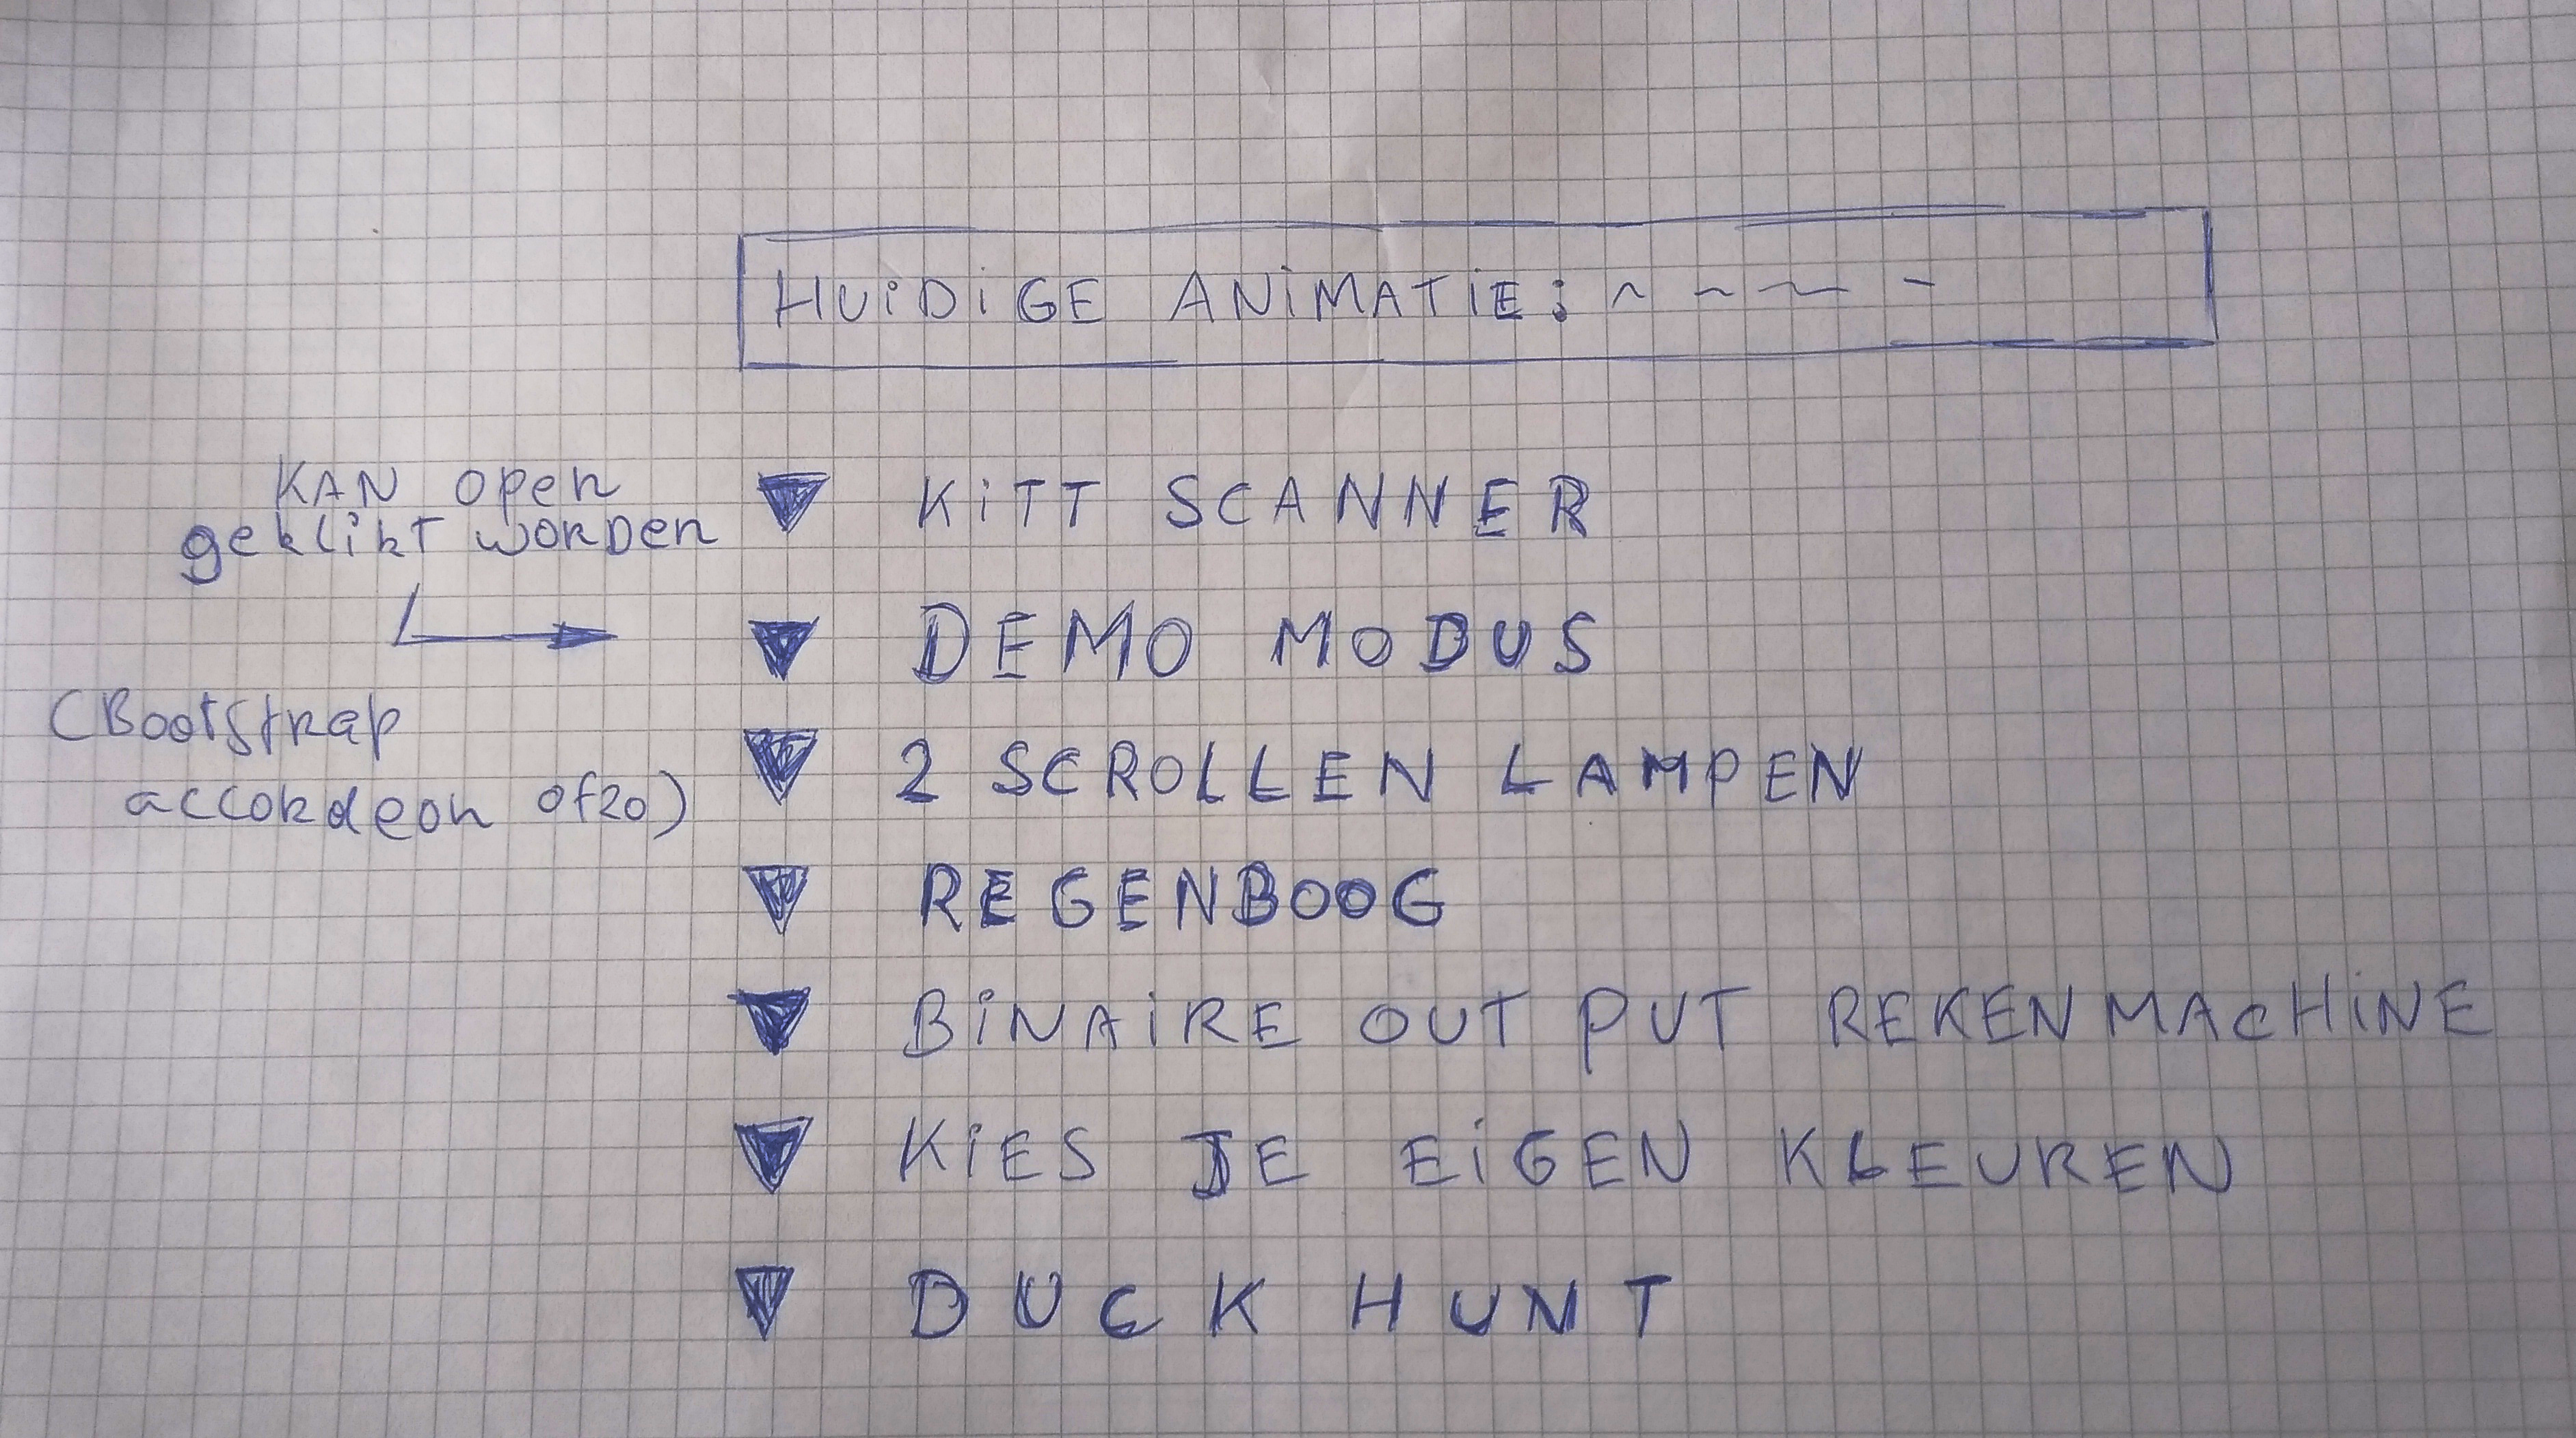 HUIDIGE ANIMATIE: ~ ~ ~ -
KAN open
geklikt worden
(Bootstrap
accordeon ofzo)
▼ KITT SCANNER
▼ DEMO MODUS
▼ 2 SCROLLEN LAMPEN
▼ REGENBOOG
▼ BINAIRE OUT PUT REKENMACHINE
▼ KIES JE EIGEN KLEUREN
▼ DUCK HUNT